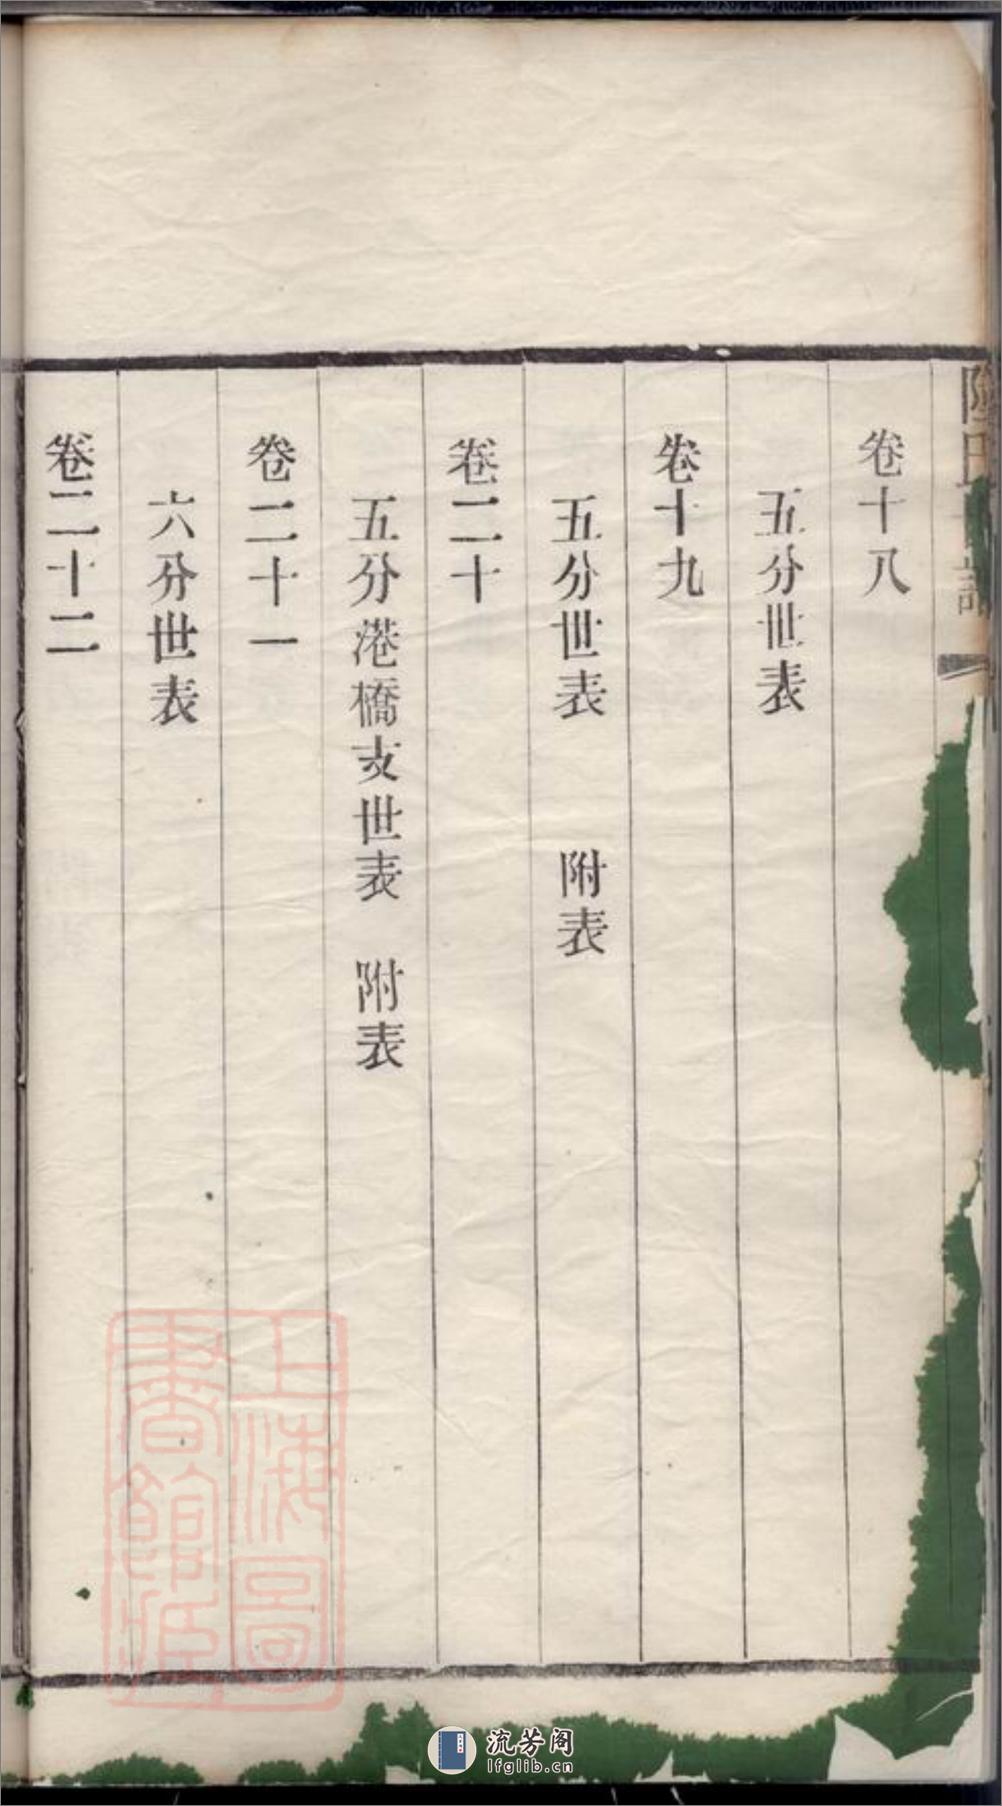 卷十八
五分世表
卷十九
五分世表 附表
卷二十
五分港橋支世表 附表
卷二十一
六分世表
卷二十二
上海圖書館藏
流芳阁
lfglib.cn